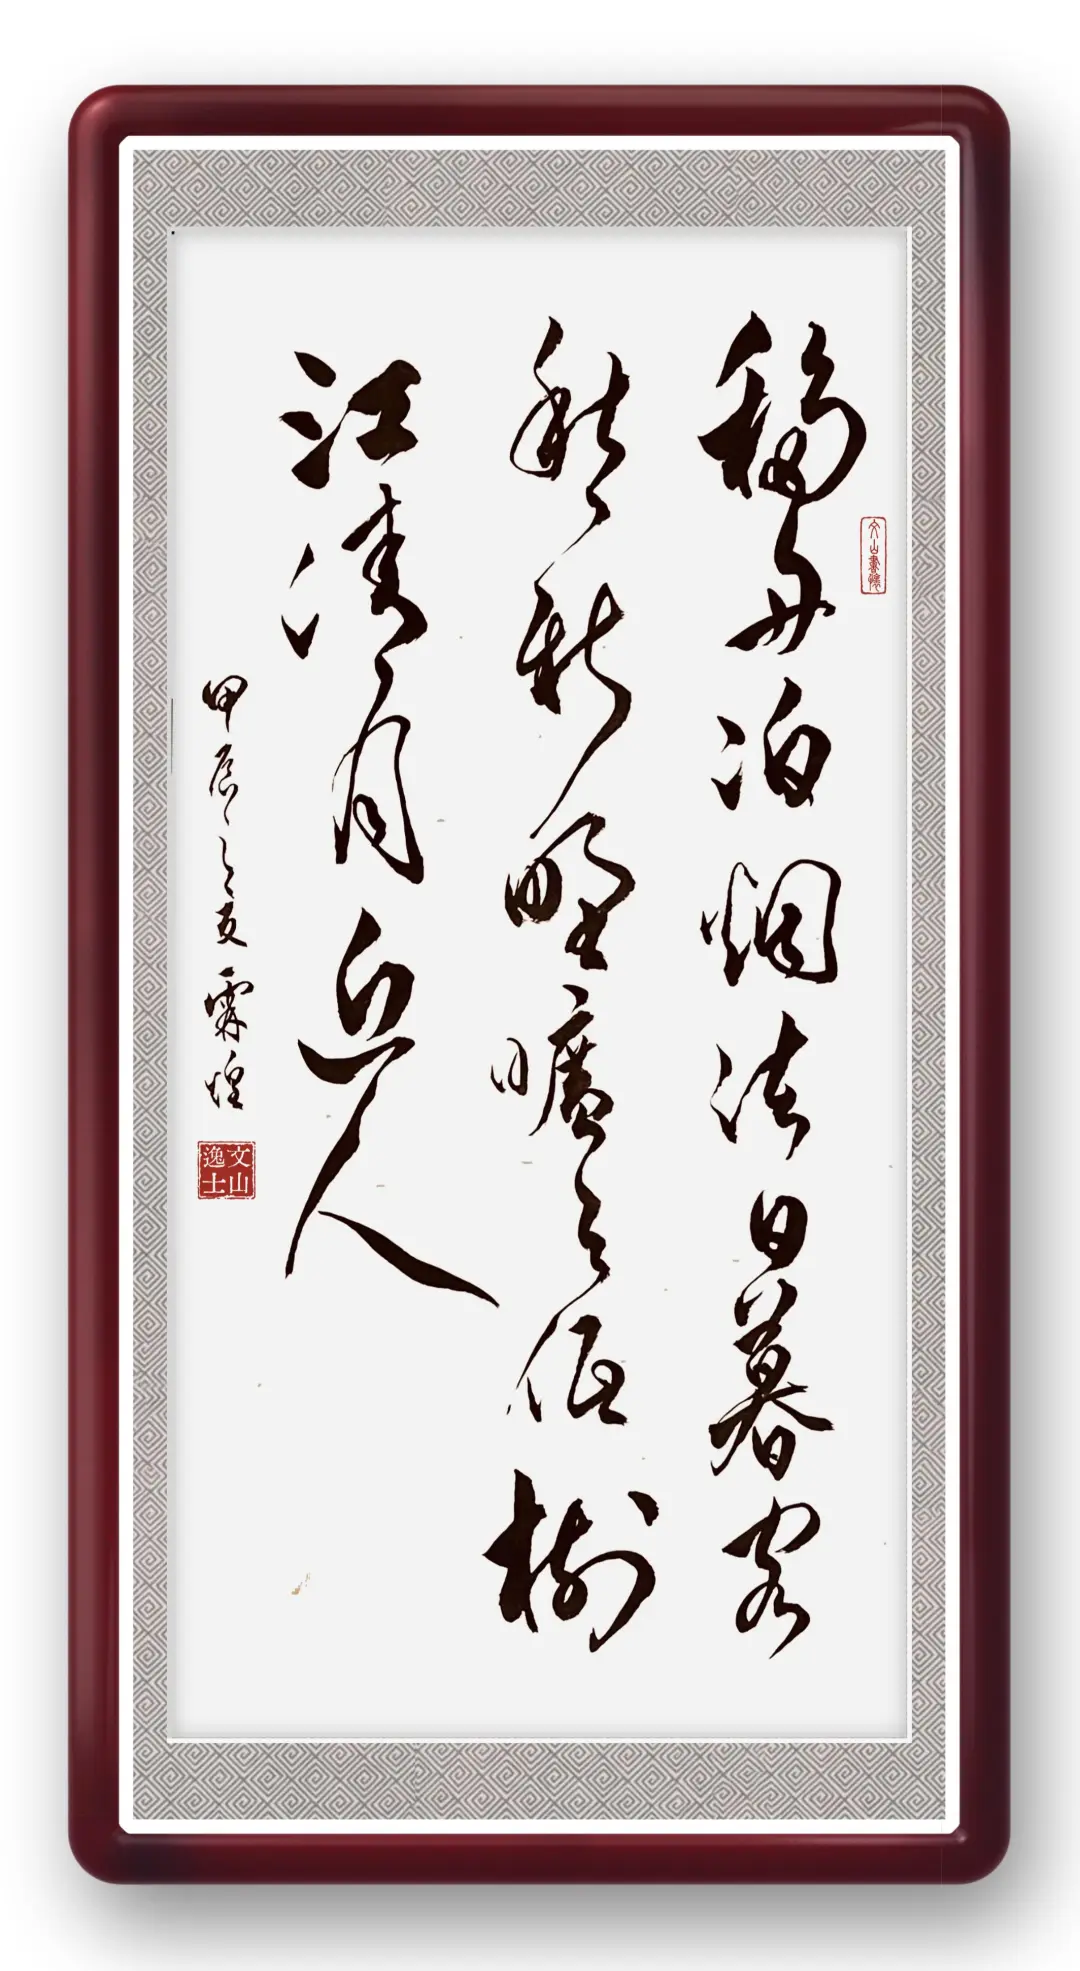 移舟泊烟渚日暮客
愁新野曠天低樹
江清月近人
甲辰之夏霖煌
文山逸士
文山書懷